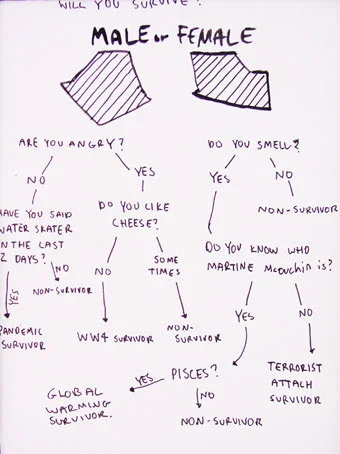 WILL YOU SURVIVE?
MALE or FEMALE
ARE YOU ANGRY?
DO YOU SMELL?
NO
YES
YES
NO
HAVE YOU SAID
WATER SKATER
IN THE LAST
2 DAYS?
DO YOU LIKE
CHEESE?
NON-SURVIVOR
DO YOU KNOW WHO
MARTINE McCUCHIN is?
YES
NO
NON-SURVIVOR
NO
SOME
TIMES
PANDEMIC
SURVIVOR
WW4 SURVIVOR
NON-
SURVIVOR
YES
NO
PISCES?
YES
NO
GLOBAL
WARMING
SURVIVOR.
NON-SURVIVOR
TERRORIST
ATTACH
SURVIVOR